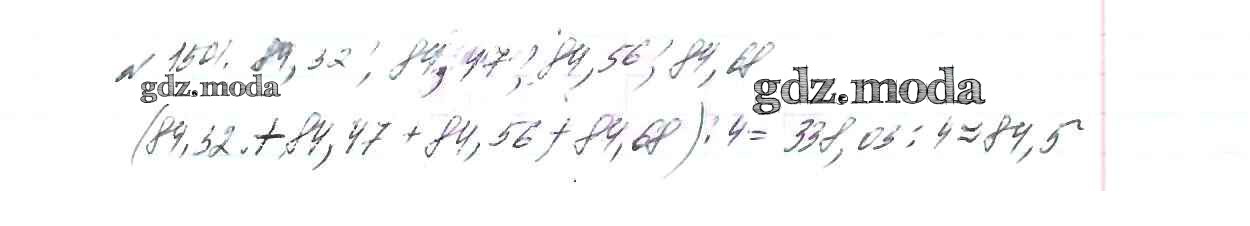 № 1501. 84,32; 84,47; 84,56; 84,68
gdz.moda gdz.moda
(84,32 + 84,47 + 84,56 + 84,68) : 4 = 338,03 : 4 ≈ 84,5